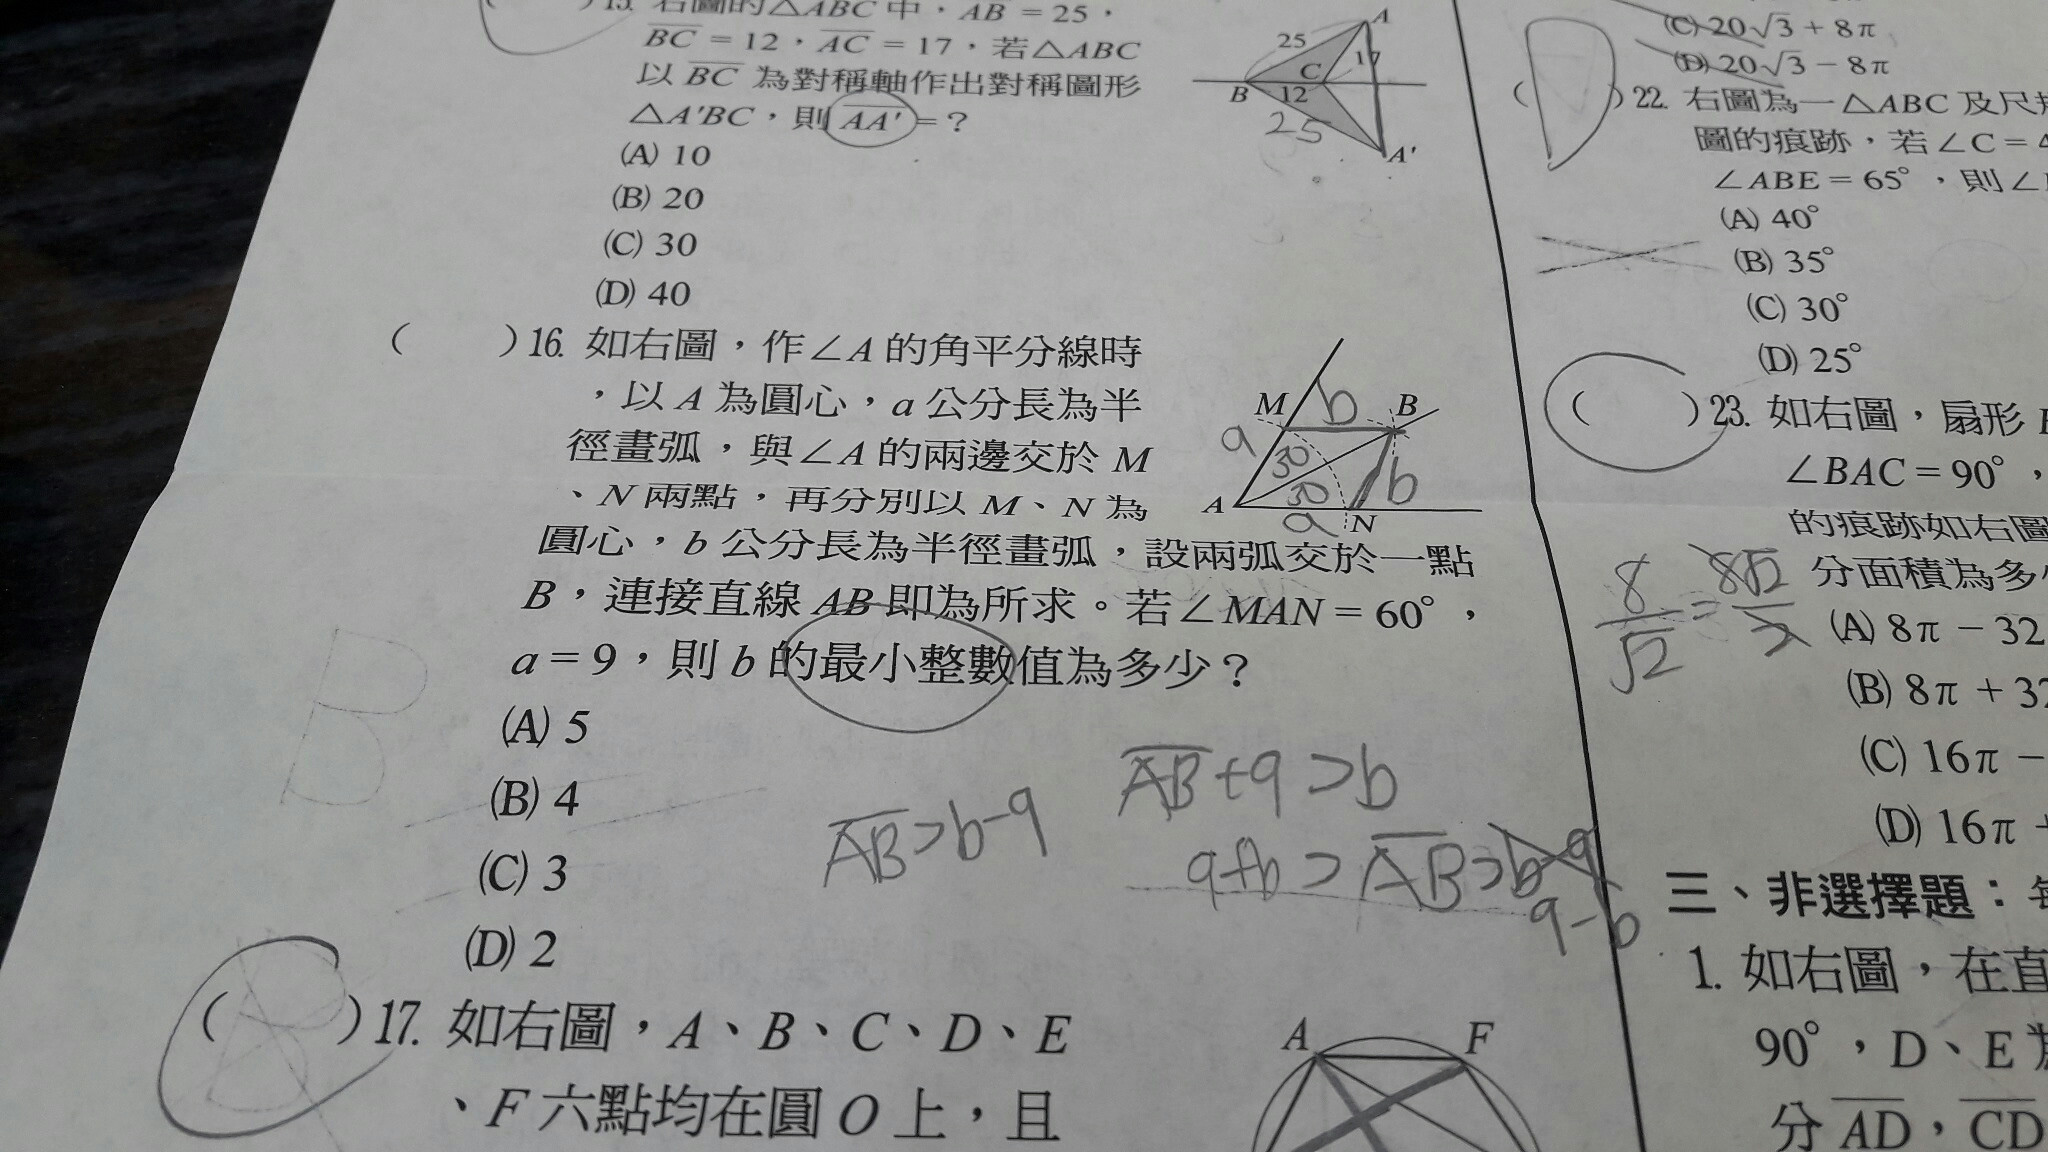 15. 右圖的△ABC中，AB = 25，
BC = 12，AC = 17，若△ABC
以 BC 為對稱軸作出對稱圖形
△A'BC，則 AA' = ？
(A) 10
(B) 20
(C) 30
(D) 40
25
A
17
C
B
12
25
A'
( )16. 如右圖，作∠A的角平分線時
，以A為圓心，a公分長為半
徑畫弧，與∠A的兩邊交於M
、N兩點，再分別以M、N為
圓心，b公分長為半徑畫弧，設兩弧交於一點
B，連接直線AB即為所求。若∠MAN = 60°，
a = 9，則b的最小整數值為多少？
(A) 5
(B) 4
(C) 3
(D) 2
M
b
B
a
30
30
b
A
a
N
B
AB + 9 > b
AB > b - 9
9 + b > AB > b - 9
9 - b
( )17. 如右圖，A、B、C、D、E
、F六點均在圓O上，且
A
F
(C) 20√3 + 8π
(D) 20√3 − 8π
( )22. 右圖為一△ABC及尺規
圖的痕跡，若∠C =
∠ABE = 65°，則∠
(A) 40°
(B) 35°
(C) 30°
(D) 25°
( )23. 如右圖，扇形
∠BAC = 90°，
的痕跡如右圖
分面積為多少
8/√2 = 8√2/2
(A) 8π − 32
(B) 8π + 32
(C) 16π −
(D) 16π +
三、非選擇題：每
1. 如右圖，在直
90°，D、E為
分 AD，CD